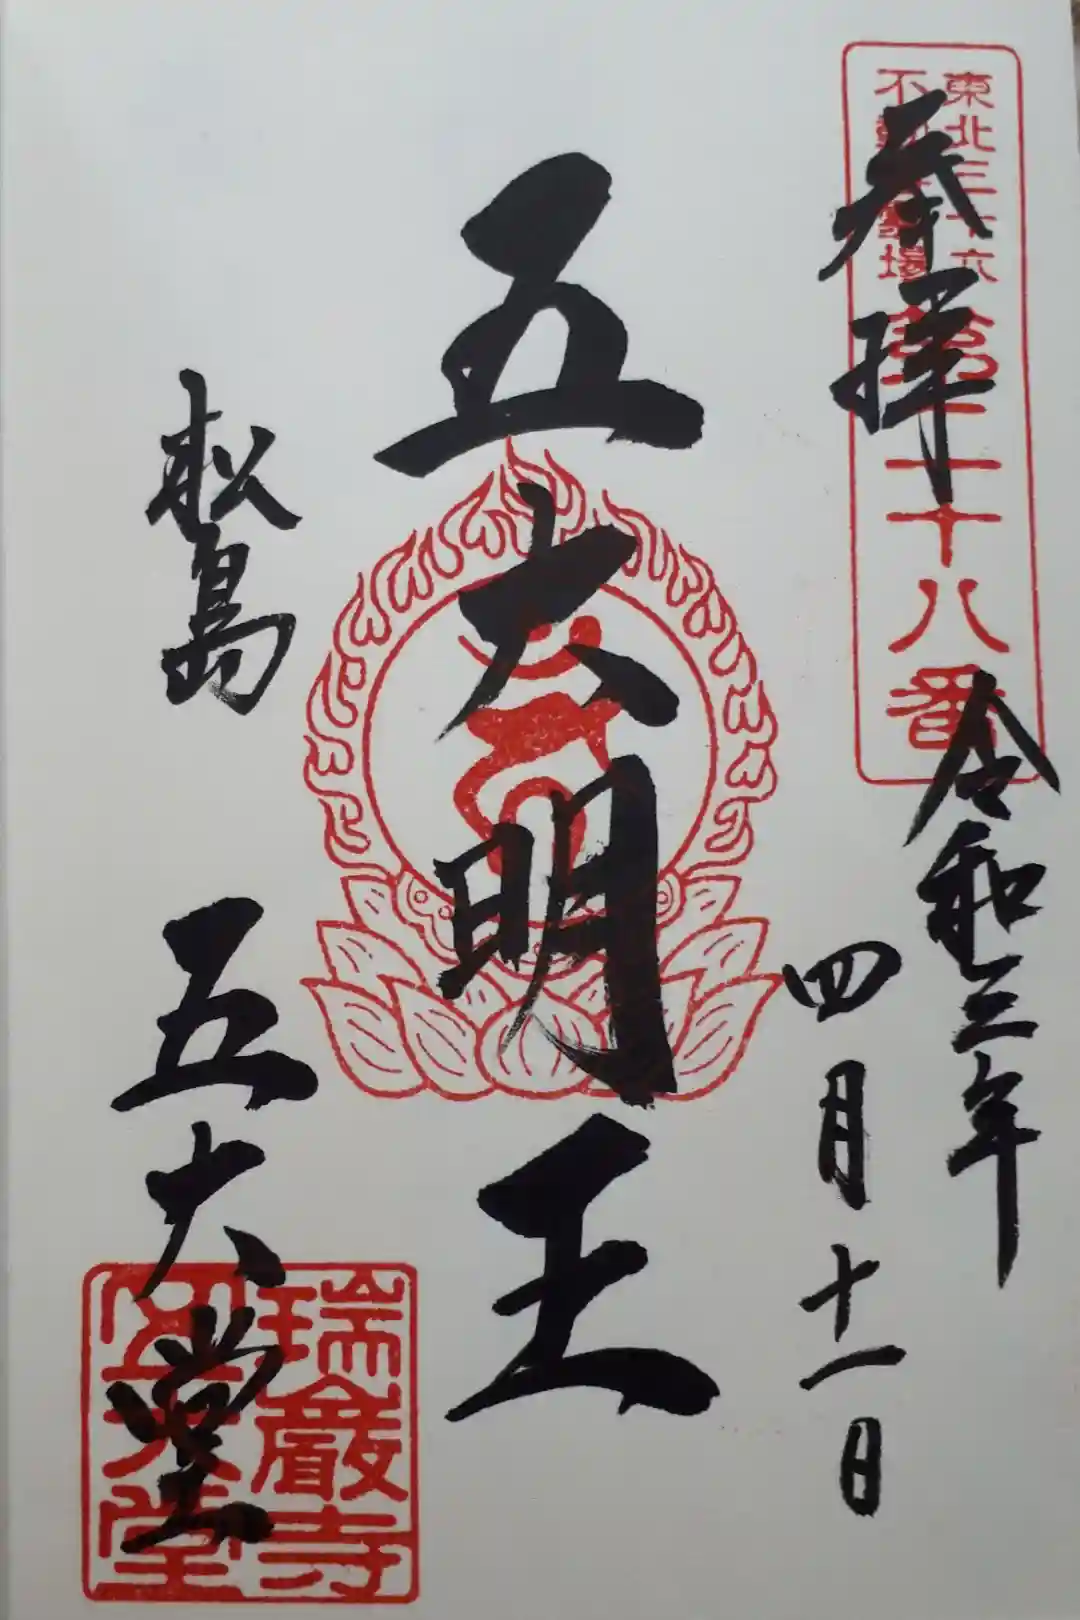 奉拝
東北三十六
不動尊霊場
第二十八番
令和三年
四月十一日
五大明王
松島
五大堂
瑞巖寺
五大堂